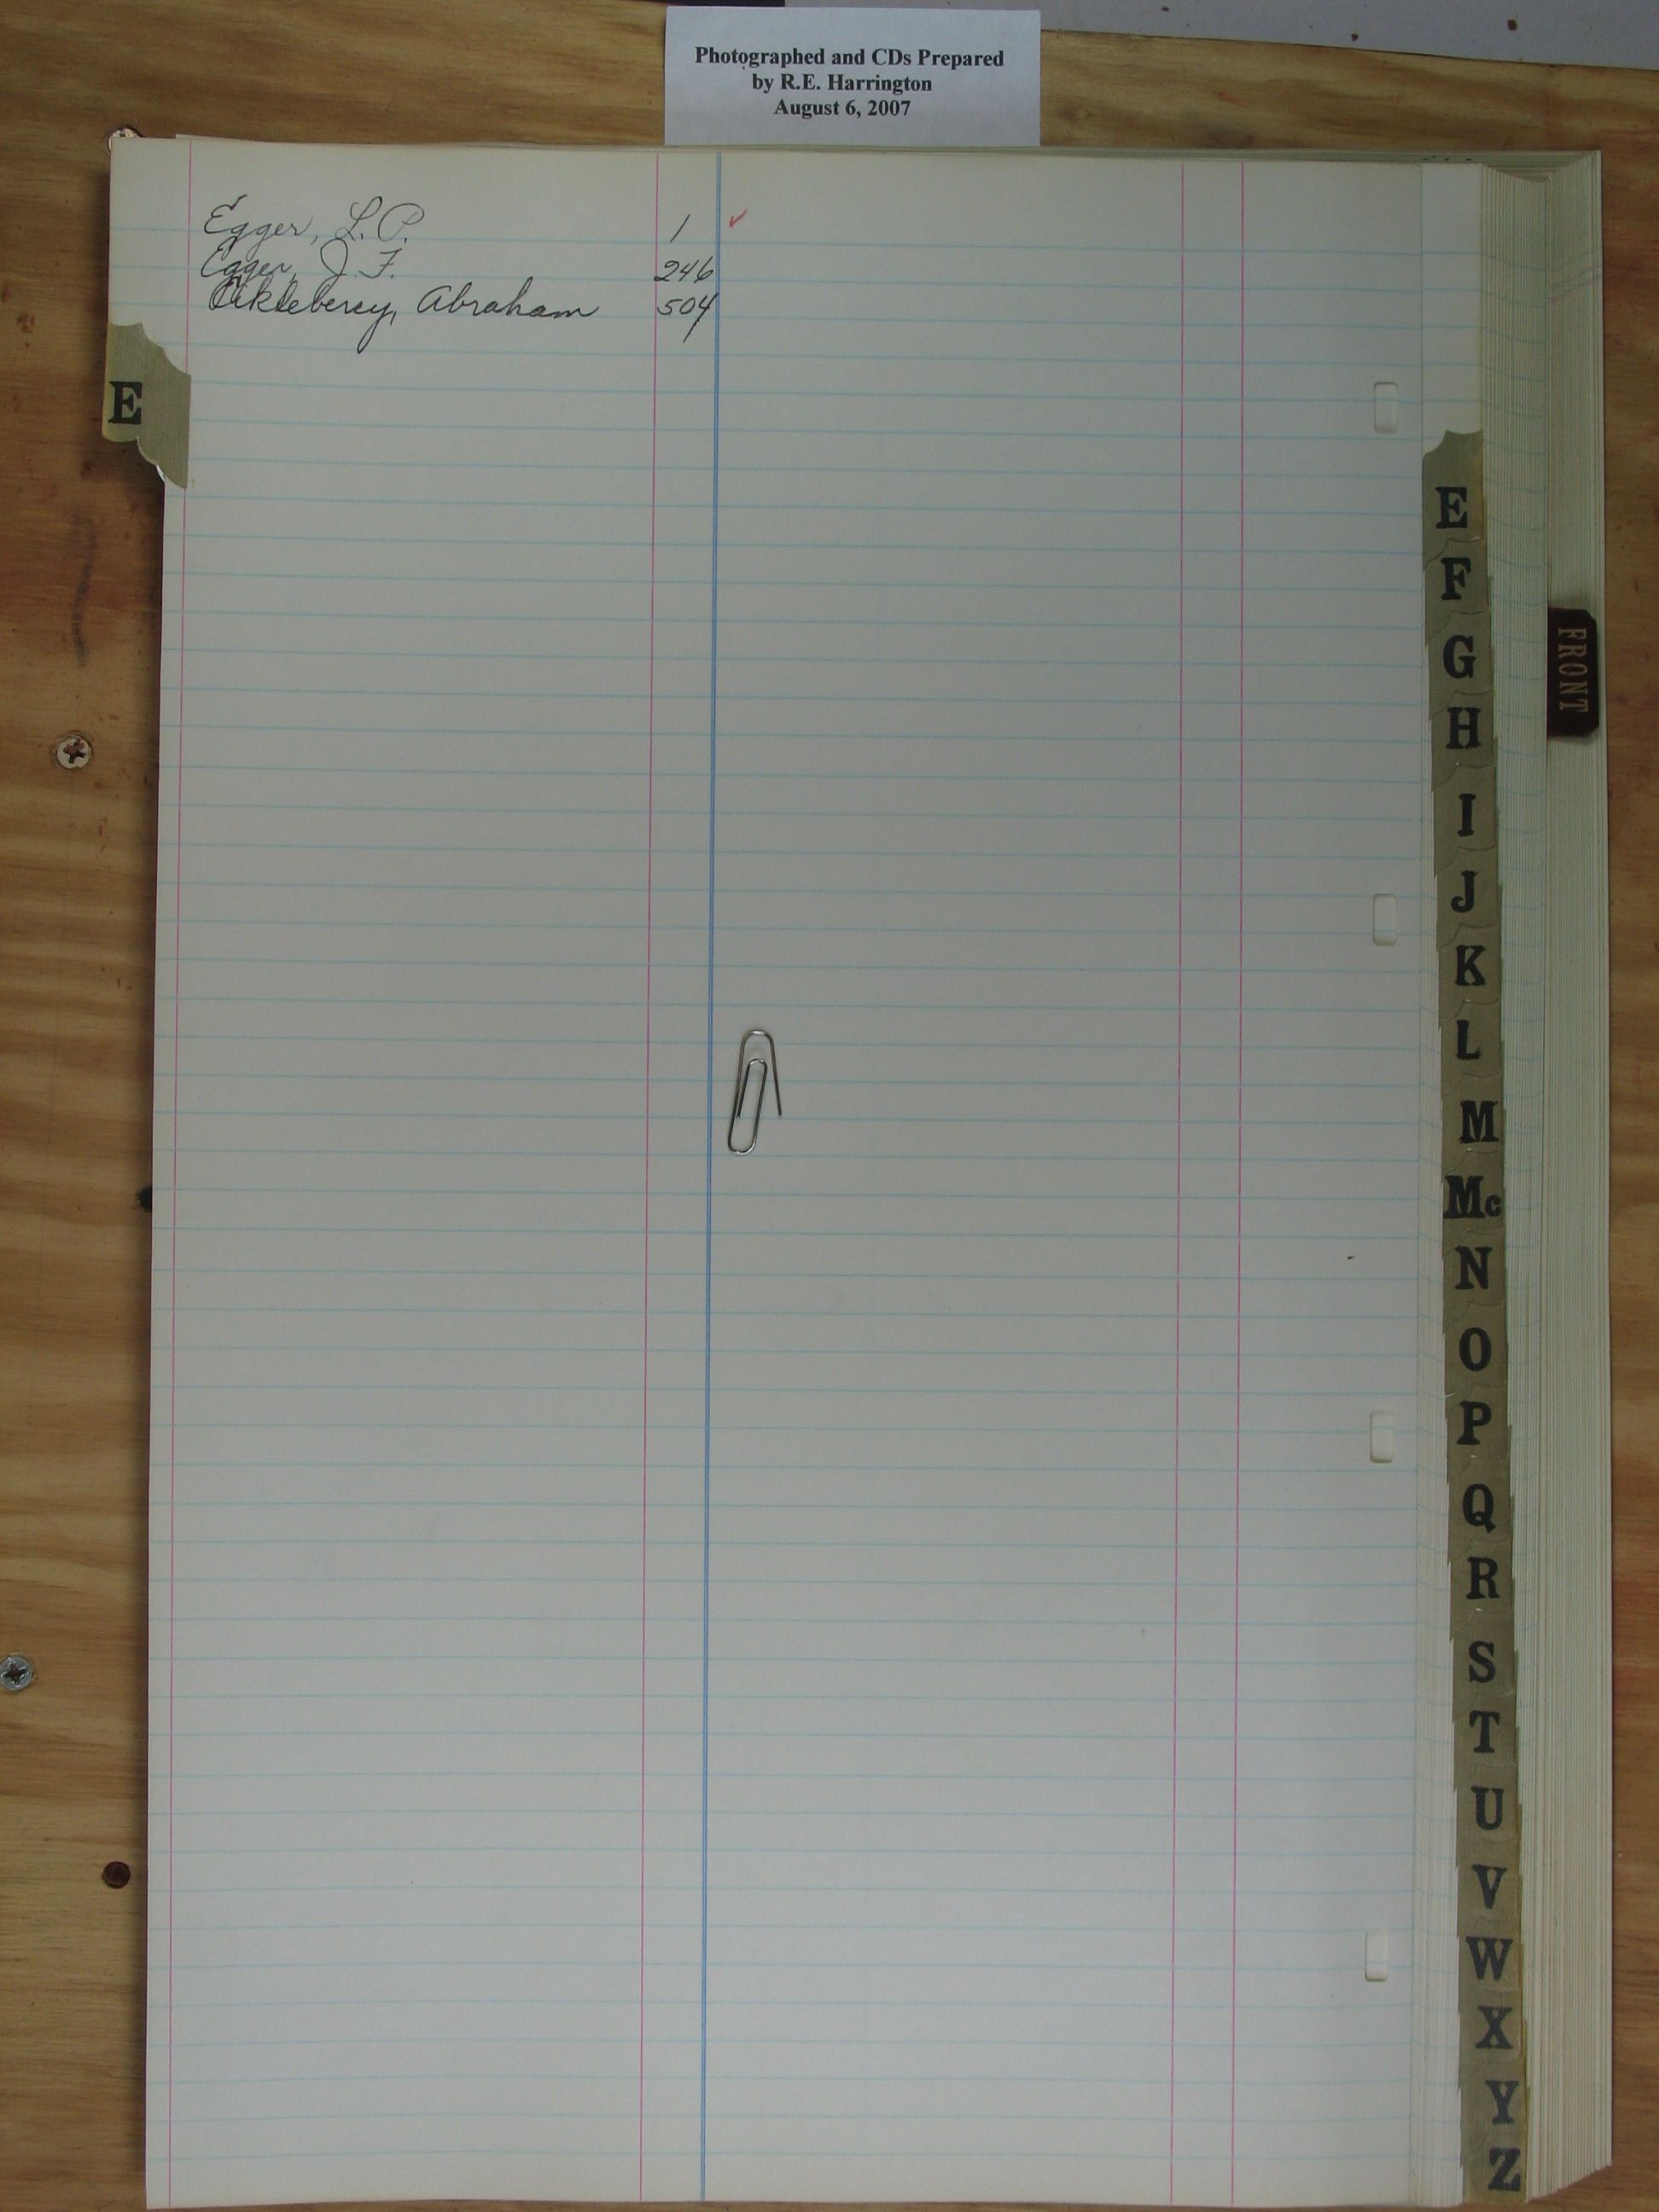 Photographed and CDs Prepared
by R.E. Harrington
August 6, 2007
Egger, L.P. 1 ✓
Egger, J.F. 246
Abraham 504
E
E
F
G
H
I
J
K
L
M
Mc
N
O
P
Q
R
S
T
U
V
W
X
Y
Z
FRONT